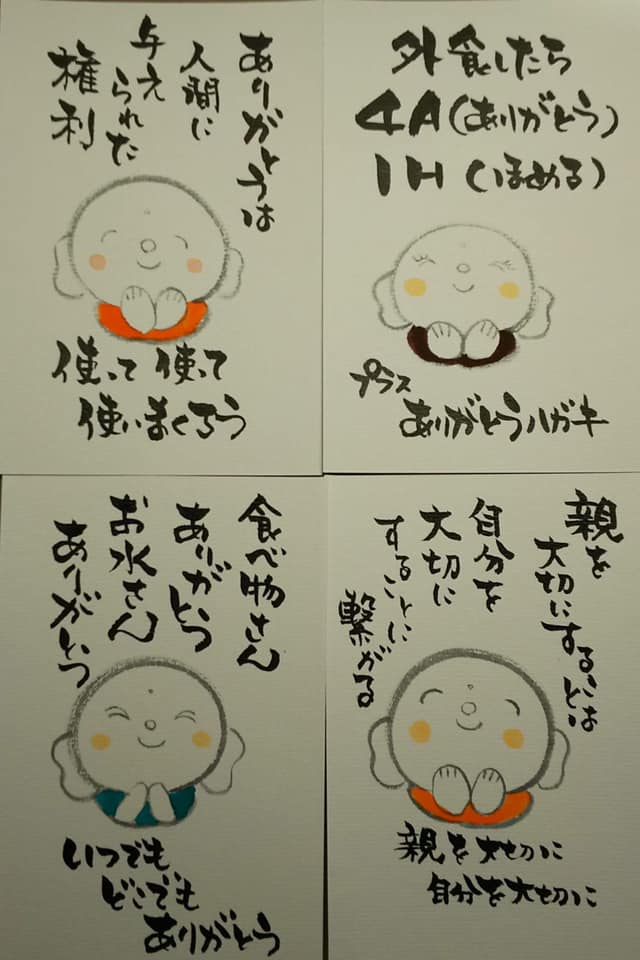 ありがとうは
人間に
与えられた
権利
使って使って
使いまくろう
外食したら
4A(ありがとう)
1H(ほめる)
プラス
ありがとうハガキ
食べ物さん
ありがとう
お水さん
ありがとう
いつでも
どこでも
ありがとう
親を
大切にすることは
自分を
大切に
することに
繋がる
親を大切に
自分を大切に